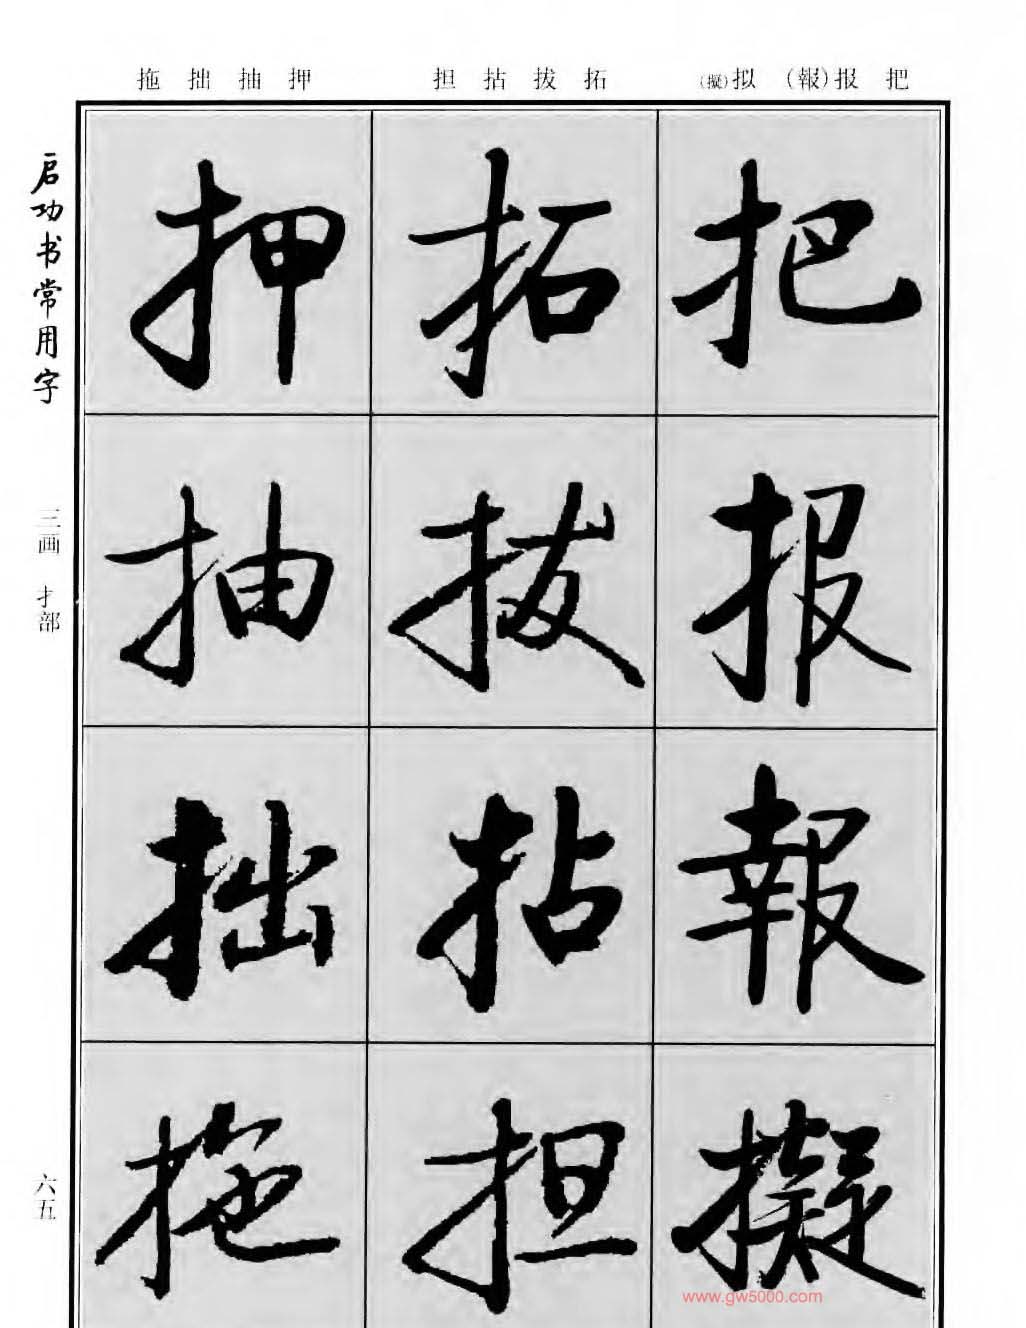 把 报(報) 拟(擬)
拓 拔 拈 担
押 抽 拙 拖
把
报
報
擬
拓
拔
拈
担
押
抽
拙
拖
启功书常用字
三画 扌部
六五
www.gw5000.com